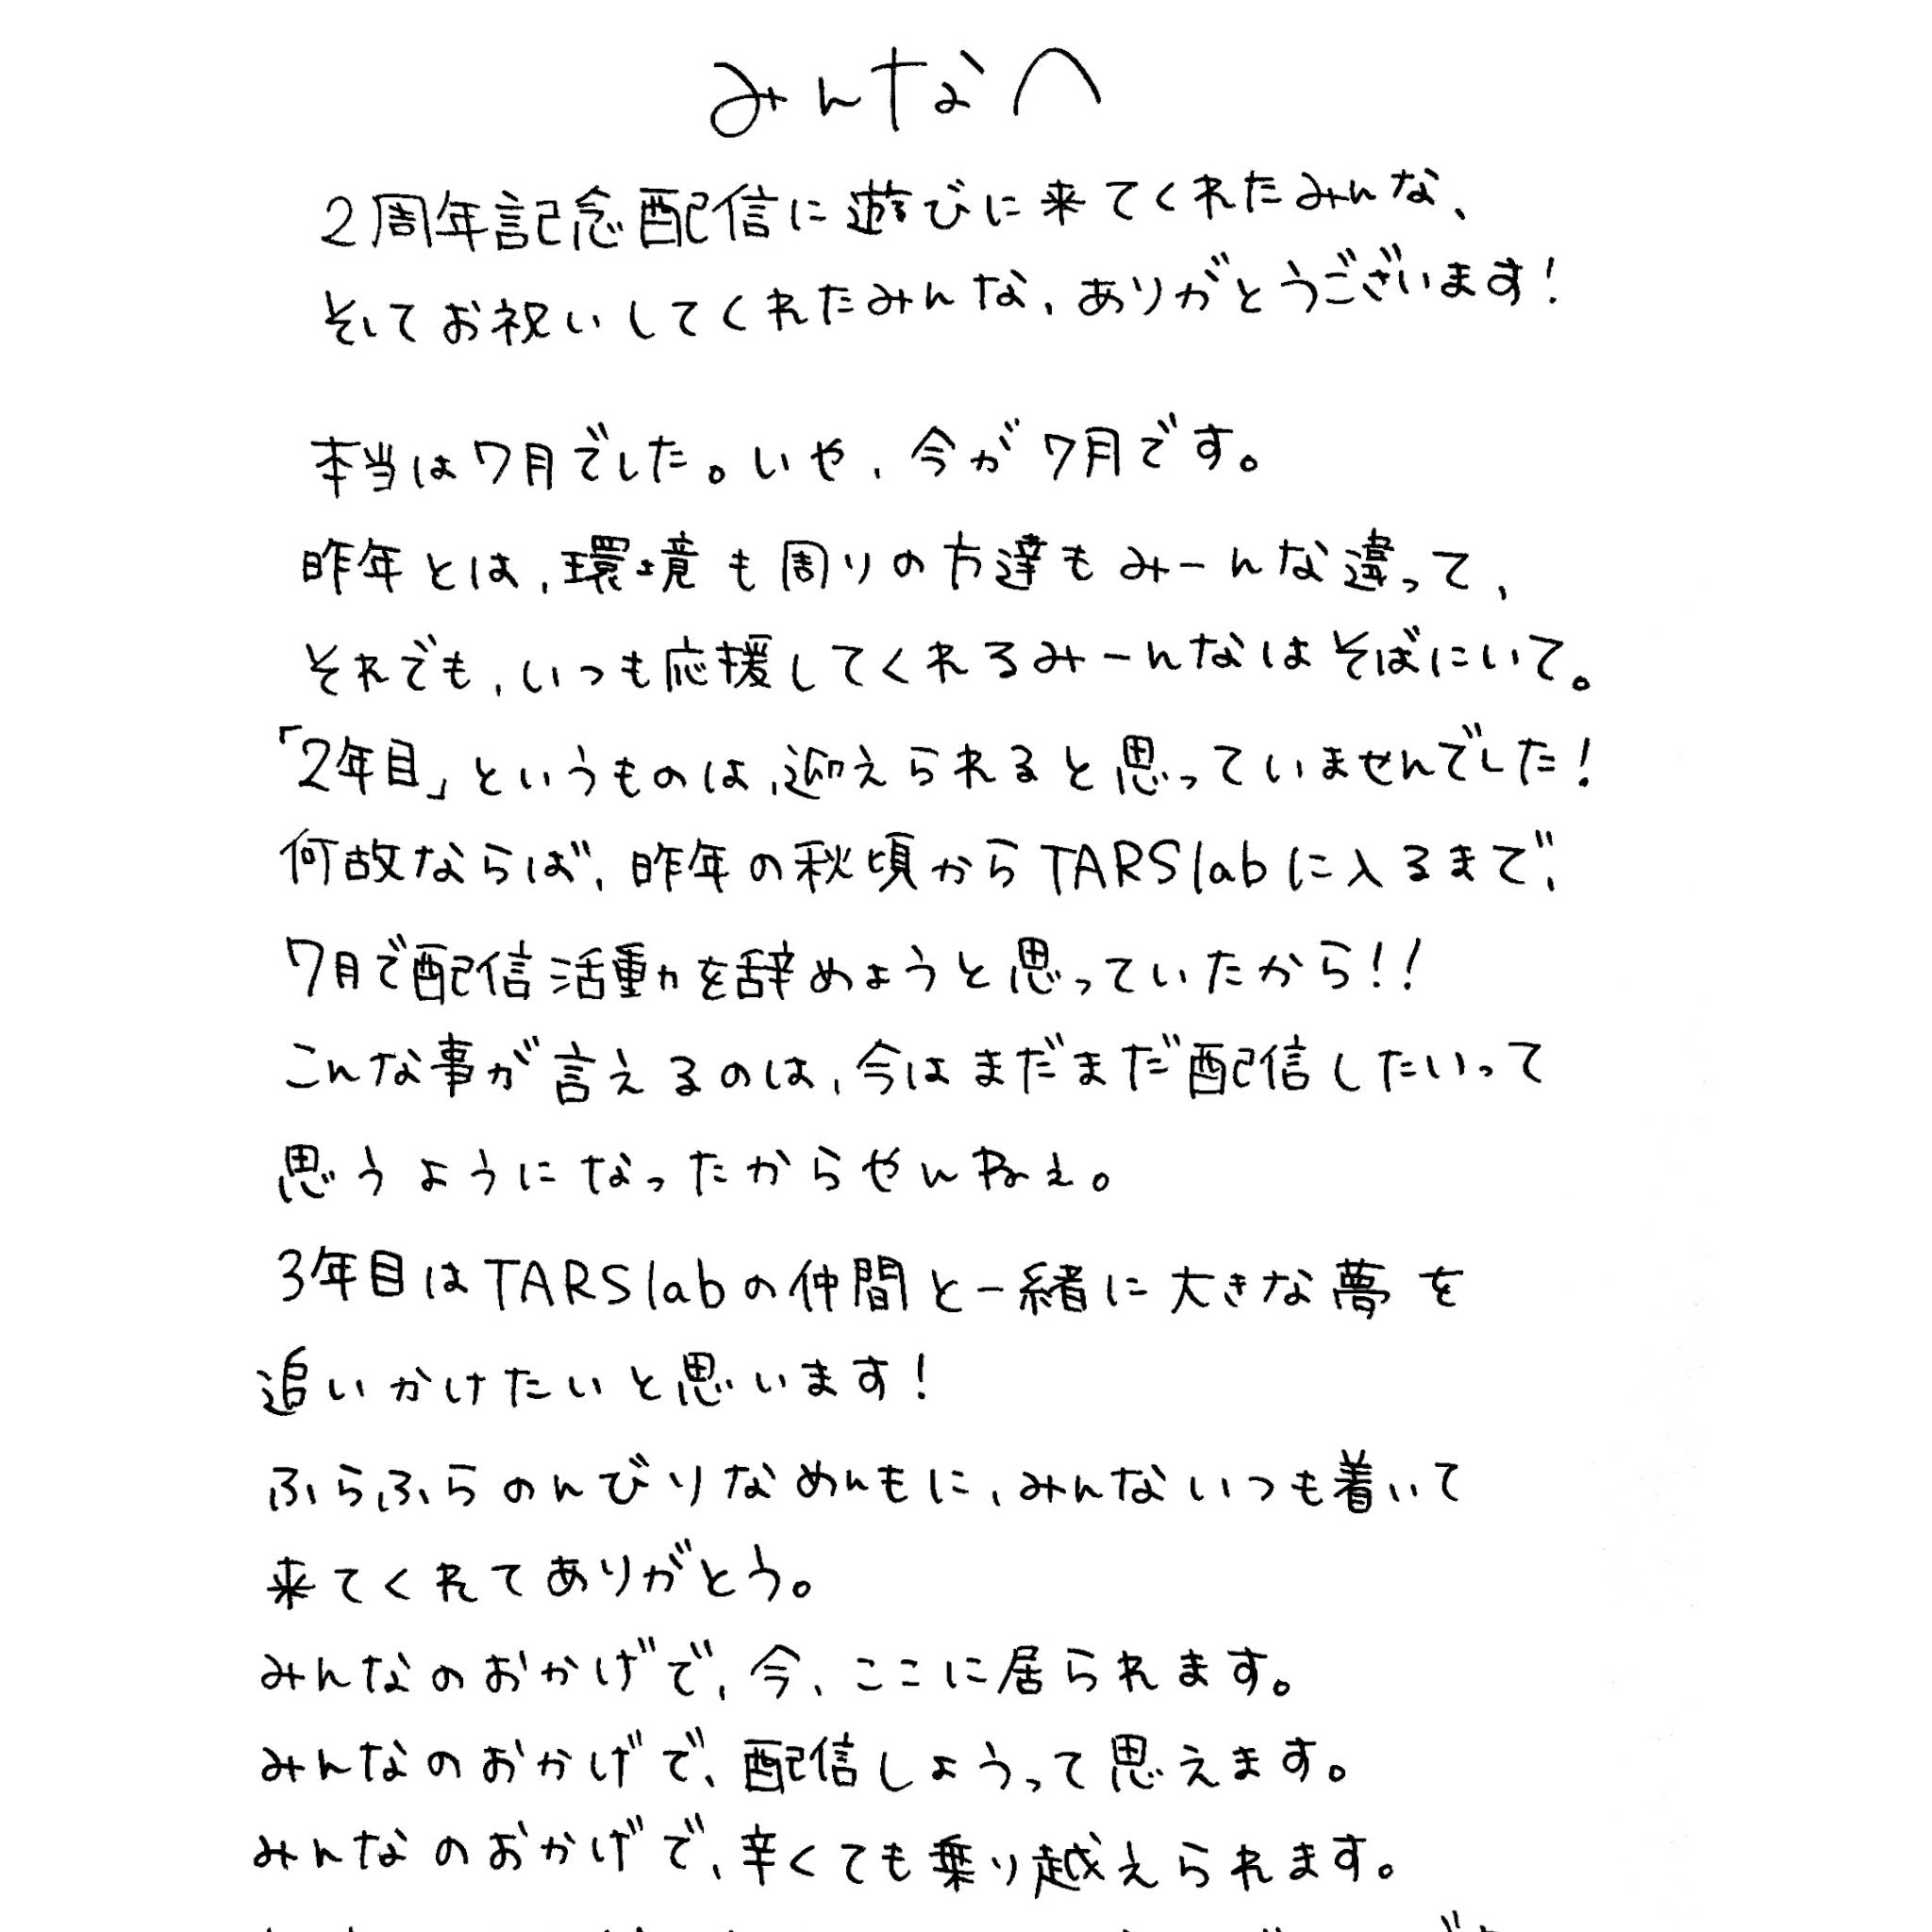 みんなへ
2周年記念配信に遊びに来てくれたみんな、
そしてお祝いしてくれたみんな、ありがとうございます!
本当は7月でした。いや、今が7月です。
昨年とは、環境も周りの方達もみーんな違って、
それでも、いつも応援してくれるみーんなはそばにいて。
「2年目」というものは、迎えられると思っていませんでした!
何故ならば、昨年の秋頃からTARSlabに入るまで、
7月で配信活動を辞めようと思っていたから!!
こんな事が言えるのは、今はまだまだ配信したいって
思うようになったからやんねぇ。
3年目はTARSlabの仲間と一緒に大きな夢を
追いかけたいと思います!
ふらふらのんびりなめんもに、みんないつも着いて
来てくれてありがとう。
みんなのおかげで、今、ここに居られます。
みんなのおかげで、配信しようって思えます。
みんなのおかげで、辛くても乗り越えられます。